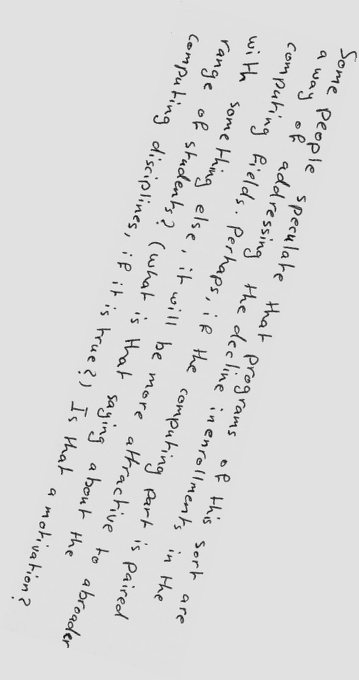 Some people speculate that programs of this sort are
a way of addressing the decline in enrollments in the
computing fields. Perhaps, if the computing part is paired
with something else, it will be more attractive to a broader
range of students? (what is that saying about the
computing disciplines, if it is true?) Is that a motivation?